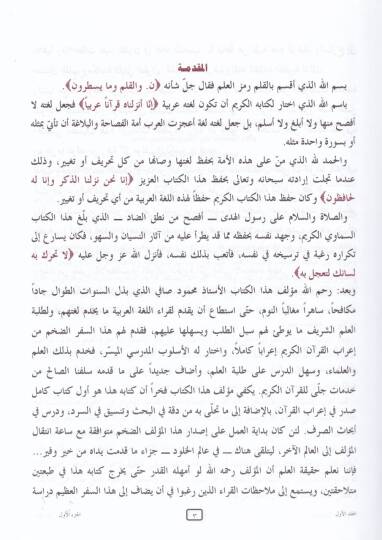 المقدمــة
بسم الله الذي أقسم بالقلم رمز العلم فقال جلّ شأنه ﴿ن. والقلم وما يسطرون﴾.
باسم الله الذي اختار لكتابه الكريم أن تكون لغته عربية ﴿إنّا أنزلناه قرآناً عربياً﴾ فجعل لغته لا
أفصح منها ولا أبلغ ولا أسلم، بل جعل لغته لغة أعجزت العرب أمة الفصاحة والبلاغة أن تأتي بمثله
أو بسورة واحدة مثله.
والحمد لله الذي منّ على هذه الأمة بحفظ لغتها وصانها من كل تحريف أو تغيير، وذلك
عندما تجلت إرادته سبحانه وتعالى بحفظ هذا الكتاب العزيز ﴿إنا نحن نزلنا الذكر وإنا له
لحافظون﴾ وكان حفظ هذا الكتاب الكريم حفظاً لهذه اللغة العربية من أي تحريف أو تغيير.
والصلاة والسلام على رسول الهدى ــ أفصح من نطق الضاد ــ الذي بلّغ هذا الكتاب
السماوي الكريم، وجهد نفسه بحفظه مما قد يطرأ عليه من آثار النسيان والسهو، فكان يسارع إلى
تكراره رغبة في ترسيخه في نفسه، فأتعب بذلك نفسه، فأنزل الله عز وجل عليه ﴿لا تحرك به
لسانك لتعجل به﴾.
وبعد: رحم الله مؤلف هذا الكتاب الأستاذ محمود صافي الذي بذل السنوات الطوال جاداً
مكافحاً، ساهراً مغالباً النوم، حتّى استطاع أن يقدم لقراء اللغة العربية ما يخدم لغتهم، ولطلبة
العلم الشريف ما يوطئ لهم سبل الطلب ويسهلها عليهم، فقدم لهم هذا السفر الضخم من
إعراب القرآن الكريم إعراباً كاملاً، واختار له الأسلوب المدرسي الميسّر، فخدم بذلك العلم
والعلماء، وسهل الدرس على طلبة العلم، وأضاف جديداً على ما قدمه سلفنا الصالح من
خدمات جلّى للقرآن الكريم. يكفي مؤلف هذا الكتاب فخراً أن كتابه هذا هو أول كتاب كامل
صدر في إعراب القرآن، بالإضافة إلى ما تحلّى به من دقة في البحث وتنسيق في السرد، ودرس في
أبحاث الصرف. لئن كان بداية العمل على إصدار هذا المؤلف الضخم متوافقة مع ساعة انتقال
المؤلف إلى العالم الآخر، ليتلقى هناك ــ في عالم الخلود ــ جزاء ما قدمت يداه من خير وفير...
فإننا نعلم حقيقة العلم أن المؤلف رحمه الله لو أمهله القدر حتى يخرج كتابه هذا في طبعتين
متلاحقتين، ويستمع إلى ملاحظات القراء الذين رغبوا في أن يضاف إلى هذا السفر العظيم دراسة
المجلد الأول
٣
الجزء الأول